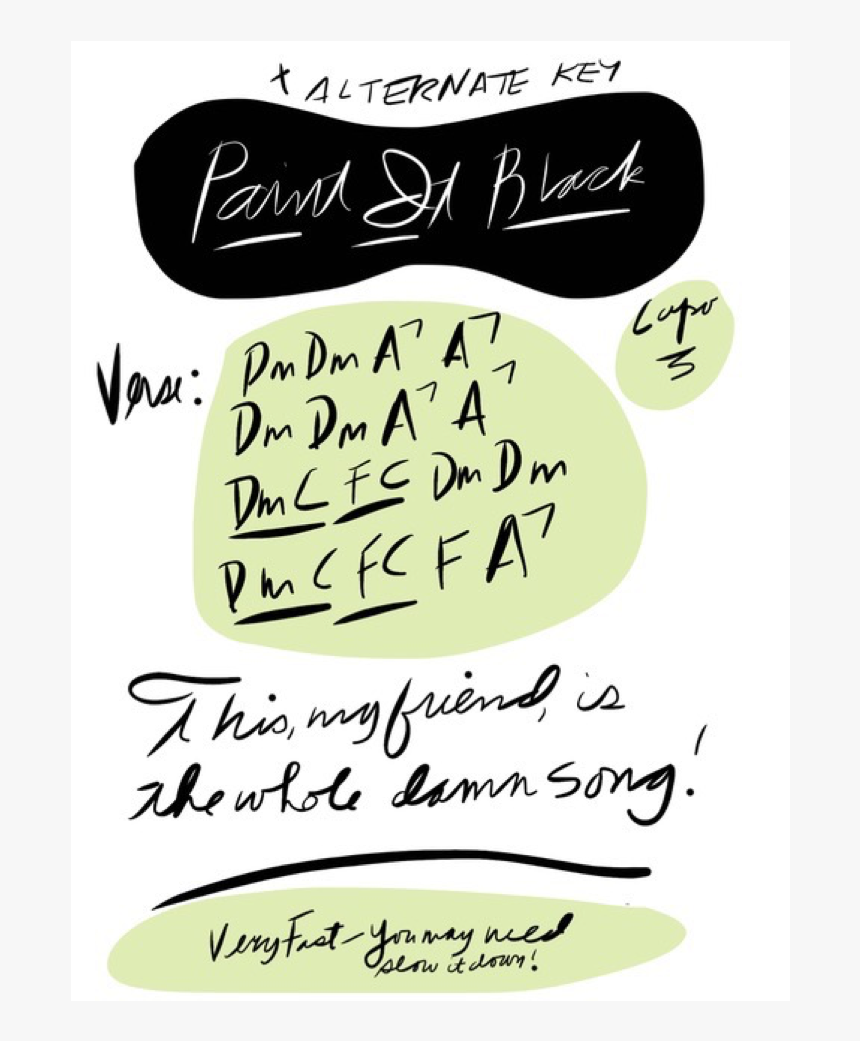 * ALTERNATE KEY
Paint It Black
Capo
3
Verse: Dm Dm A7 A7
Dm Dm A7 A7
Dm C F C Dm Dm
Dm C F C F A7
This, my friend, is
the whole damn song!
Very Fast - You may need
slow it down!